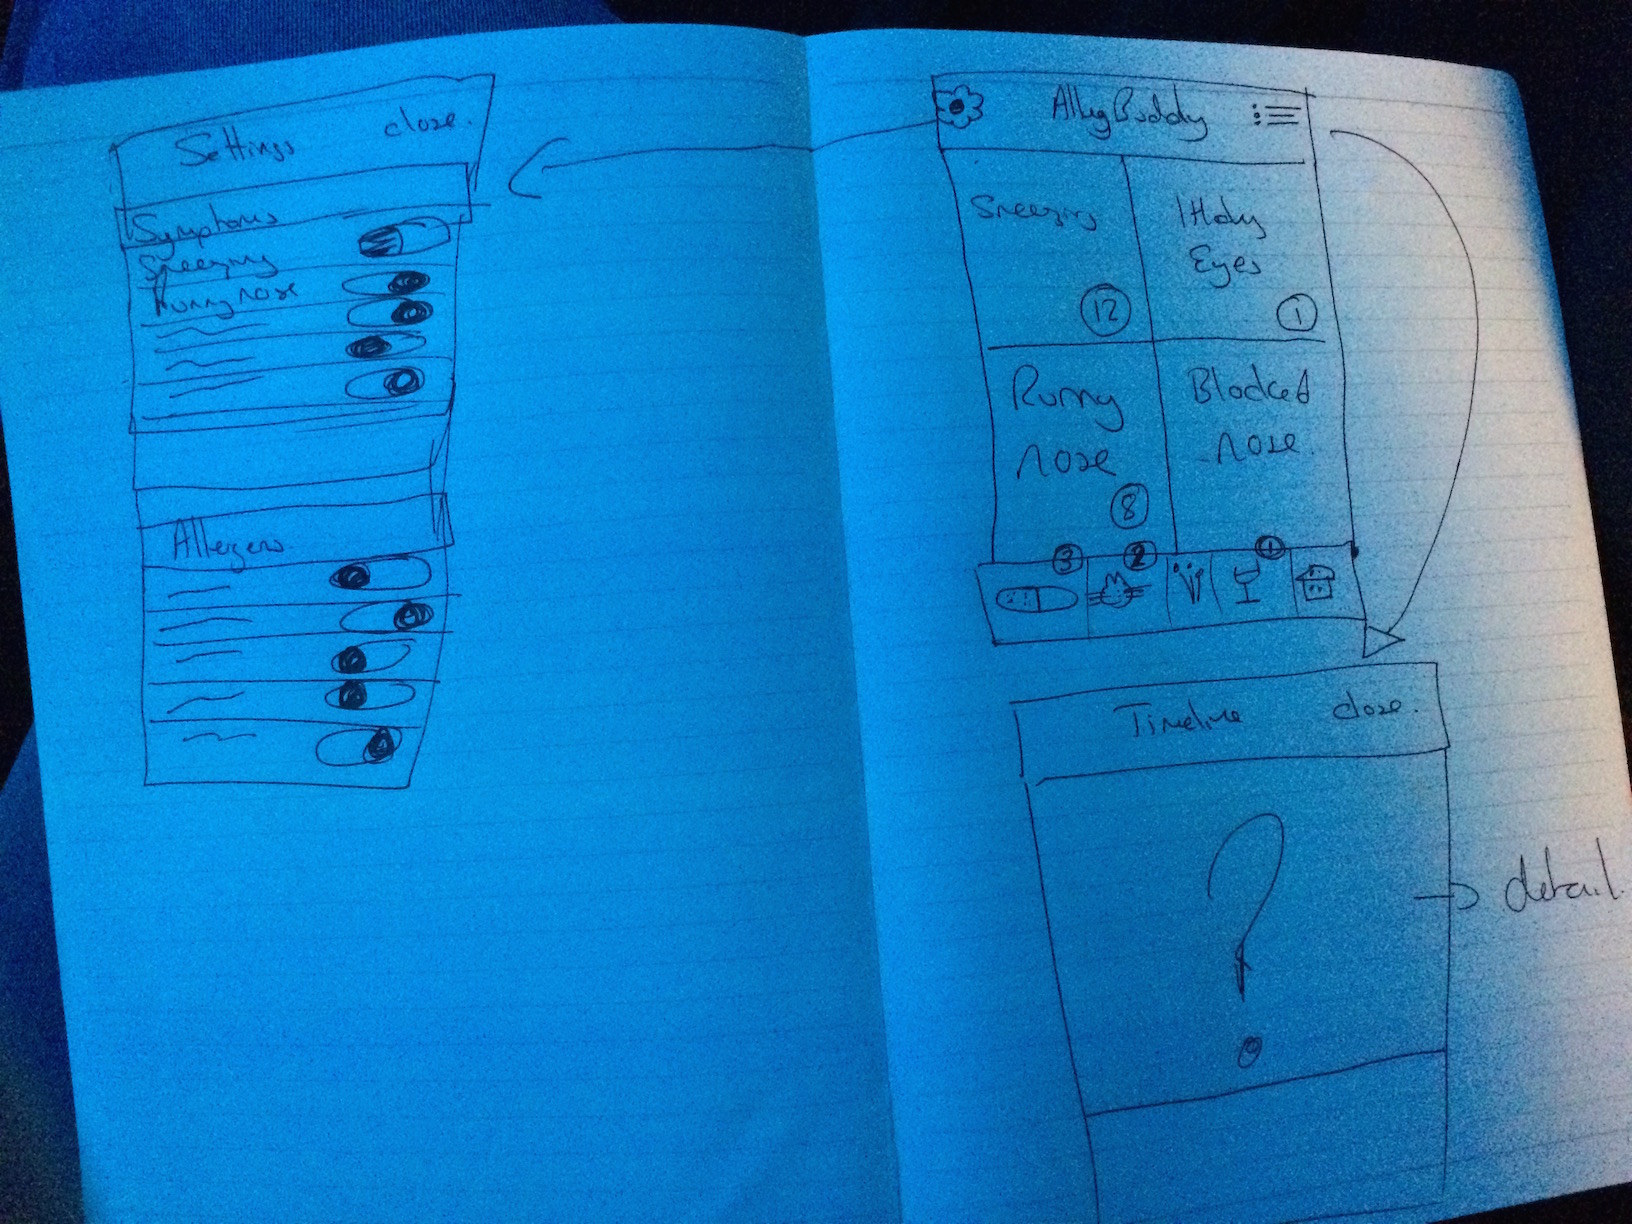 Settings close.
Symptoms
Sneezing
Runny nose
Allergens
AllergBuddy
Sneezing
12
Itchy
Eyes
1
Runny
nose
8
Blocked
nose.
3
2
1
Timeline close.
?
detail.